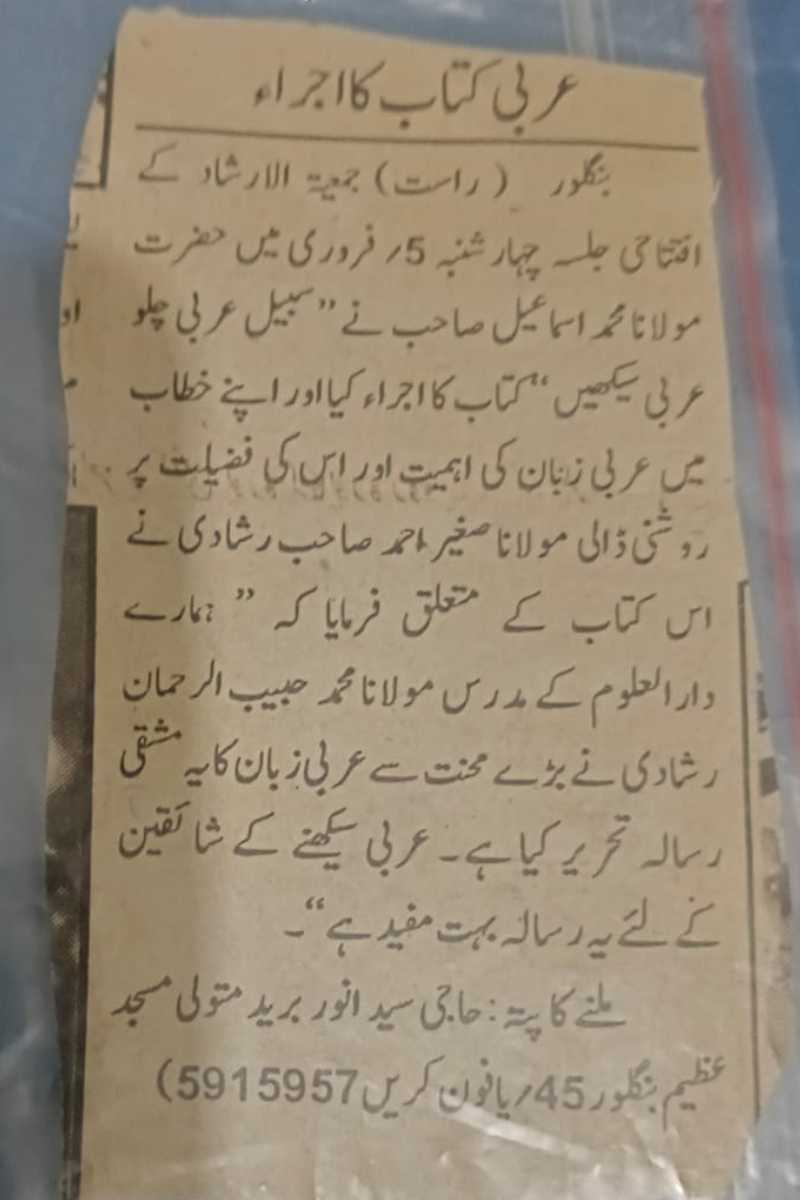 عربی کتاب کا اجراء
بنگلور (راست) جمعیۃ الارشاد کے
افتتاحی جلسہ چہار شنبہ 5؍ فروری میں حضرت
مولانا محمد اسماعیل صاحب نے ”سبیل عربی چلو
عربی سیکھیں“ کتاب کا اجراء کیا اور اپنے خطاب
میں عربی زبان کی اہمیت اور اس کی فضیلت پر
روشنی ڈالی مولانا صغیر احمد صاحب رشادی نے
اس کتاب کے متعلق فرمایا کہ ” ہمارے
دارالعلوم کے مدرس مولانا محمد حبیب الرحمان
رشادی نے بڑے محنت سے عربی زبان کا یہ مشقی
رسالہ تحریر کیا ہے۔ عربی سیکھنے کے شائقین
کے لئے یہ رسالہ بہت مفید ہے“۔
ملنے کا پتہ : حاجی سید انور برید متولی مسجد
عظیم بنگلور 45؍ یا فون کریں 5915957)